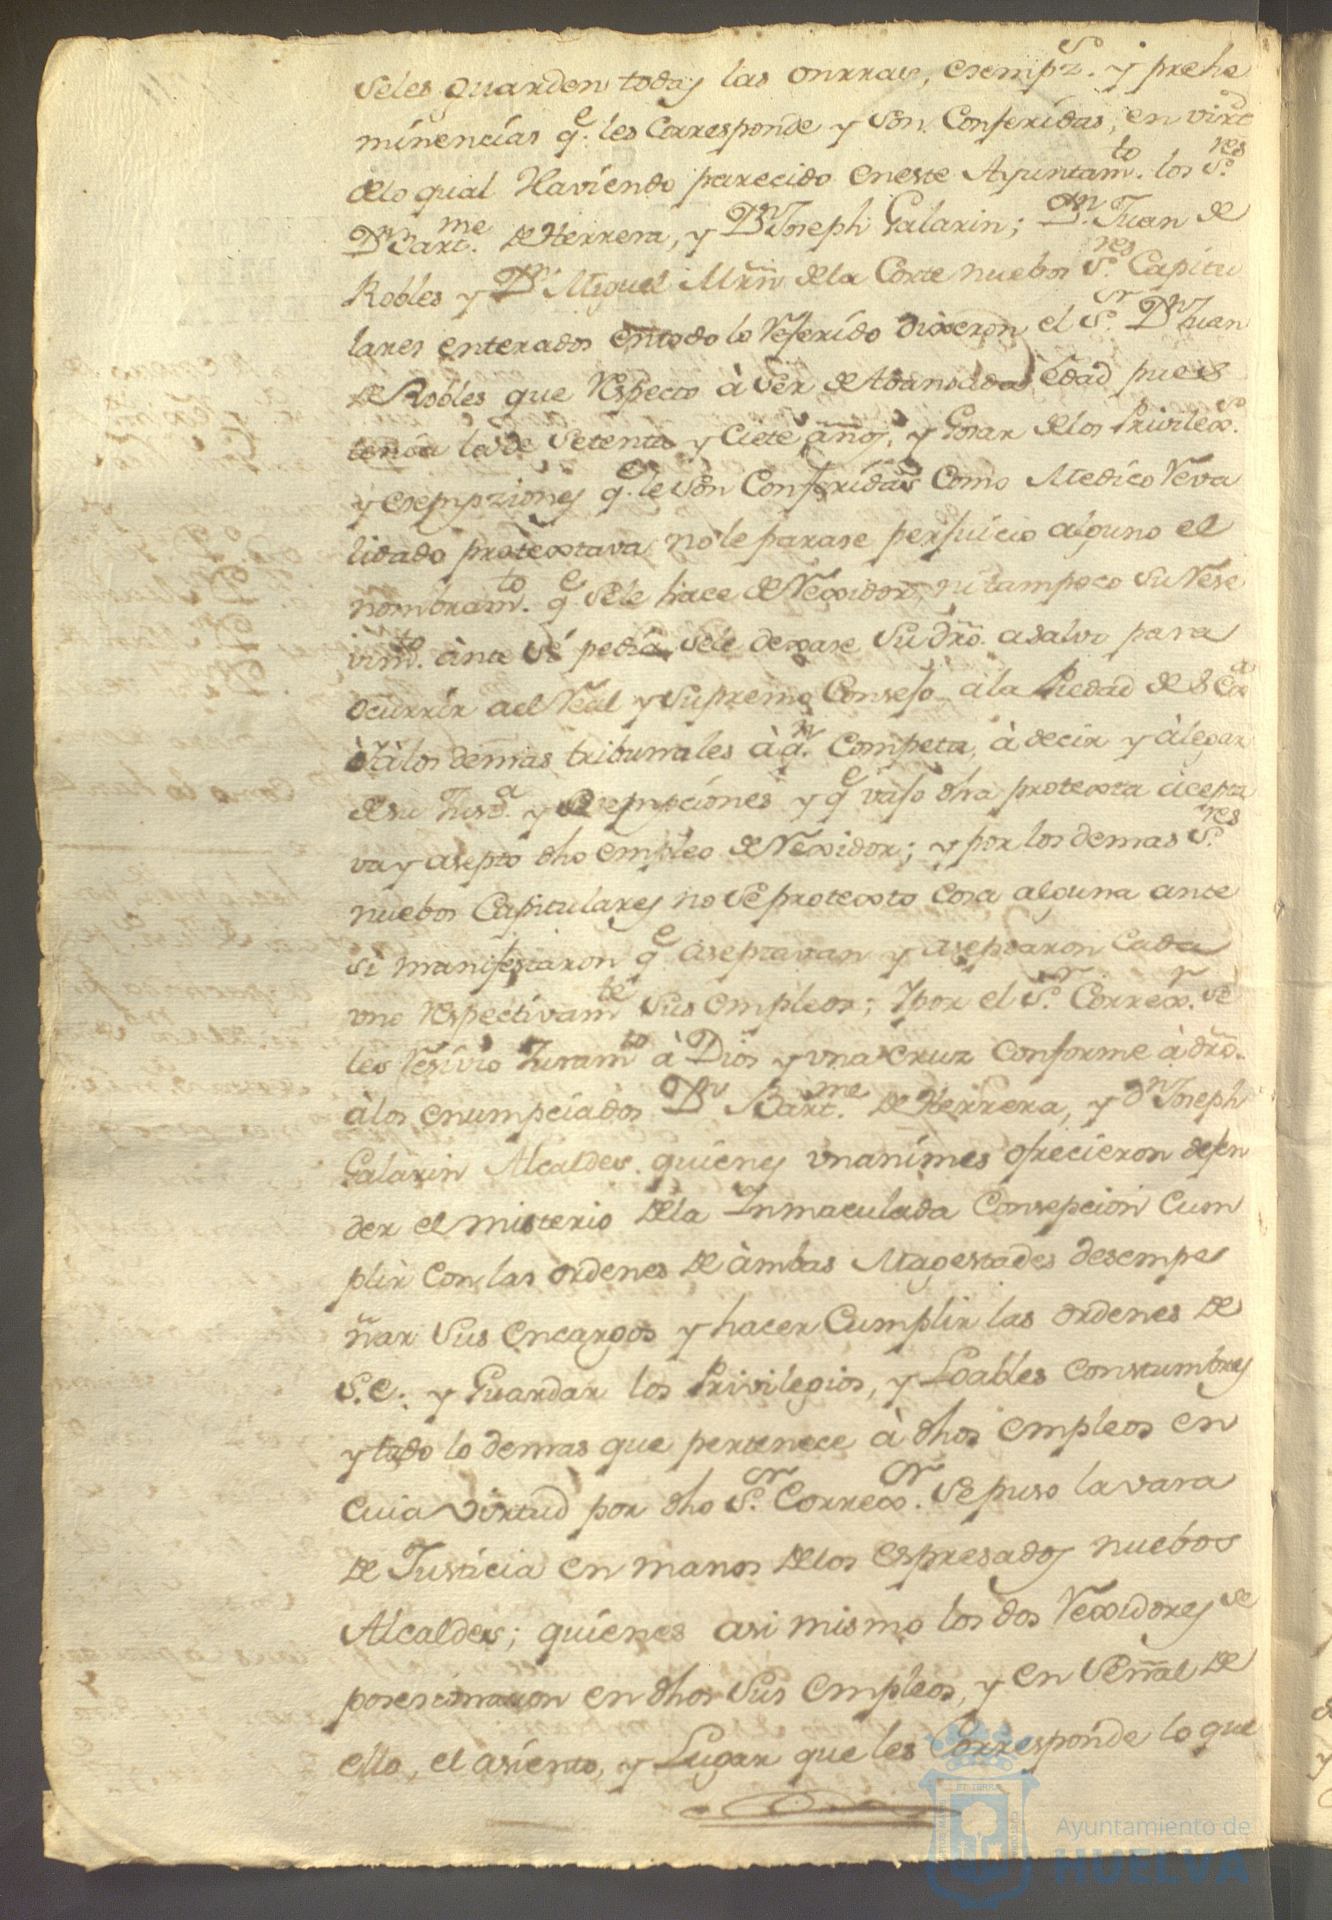 seles guarden todas las onrras, esempz.s y prehe
minencias q.e les corresponde y son conferidas, en virt.d
delo qual Haviendo parecido eneste Ayuntam.to los S.res
D.n Bart.me de Herrera, y D.n Joseph Galarin; D.n Juan de
Robles y D.n Miguel Mrñ dela Corte nuebos S.res Capitu
lares enterados entodo lo Referido dixeron el S.or D.n Juan
de Robles que respecto à ser de Abansada edad pues
tenia la de setenta y ciete años, y Gosar delos Privilex.s
y esempziones q.e le son conferidas como Medico Reva
lidado protextava no le parase perjuicio alguno el
nombram.to q.e sele hace de Rexidor, ni tampoco su Rese
vim.to ànte sé pedia sele dexase su dro. asalvo para
ocurrir ael Real y Supremo Consejo ala Piedad de S Ex.a
ò à los demas tribunales à q.n competa, à decir y àlegar
desu Just.a y esempciones y q.e vajo dha protexta acepta
va y asepto dho empleo de Rexidor; y por los demas S.res
nuebos Capitulares no se protexto cosa alguna ante
si manifestaron q.e aseptavan y aseptaron cada
uno respectivam.te sus empleos; Ypor el S.r Correx.r se
les Resivio Juram.to à Dios y una Cruz conforme à dro.
àlos enumpciados D.n Bart.me de Herrera, y D.n Joseph
Galarin Alcaldes. quienes unanimes ofrecieron defen
der el misterio dela Inmaculada Consepcion cum
plir con las ordenes de àmbas Magestades desempe
ñar sus encargos y hacer cumplir las ordenes de
S.E. y Guardar los Privilegios, y Loables constumbres
y todo lo demas que pertenece à dhos empleos en
cuia virtud por dho S.or Correx.or se puso la vara
de Justicia en manos delos espresados nuebos
Alcaldes; quienes asi mismo los dos Rexidores se
posescionaron en dhos sus empleos, y en señal de
ello, el asiento, y Lugar que les Corresponde lo que
Ayuntamiento de
HUELVA